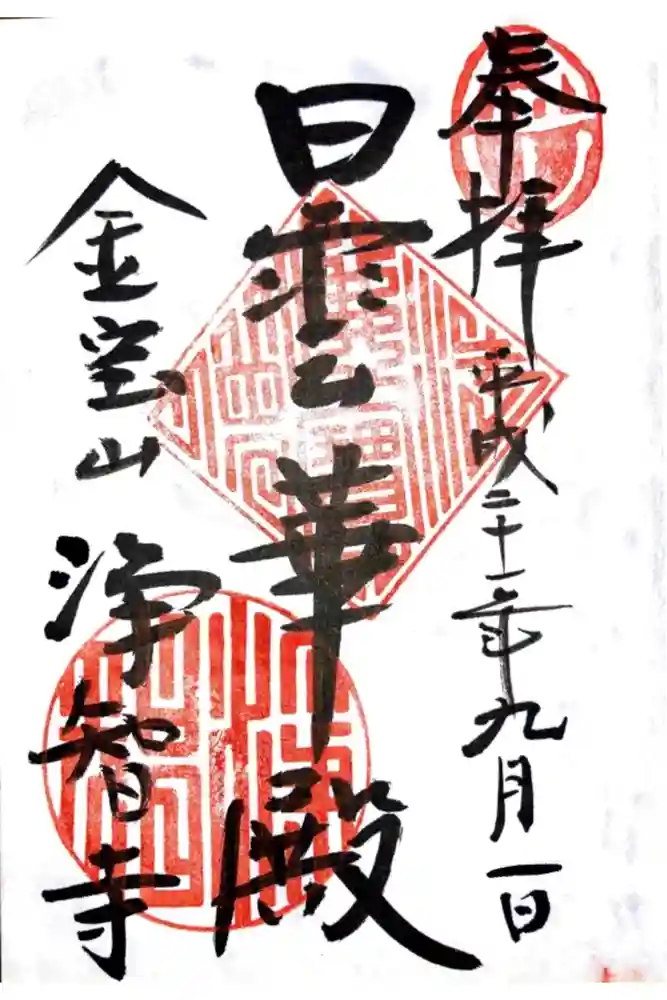 奉拝 平成二十一年九月一日
曇華殿
金宝山 浄智寺